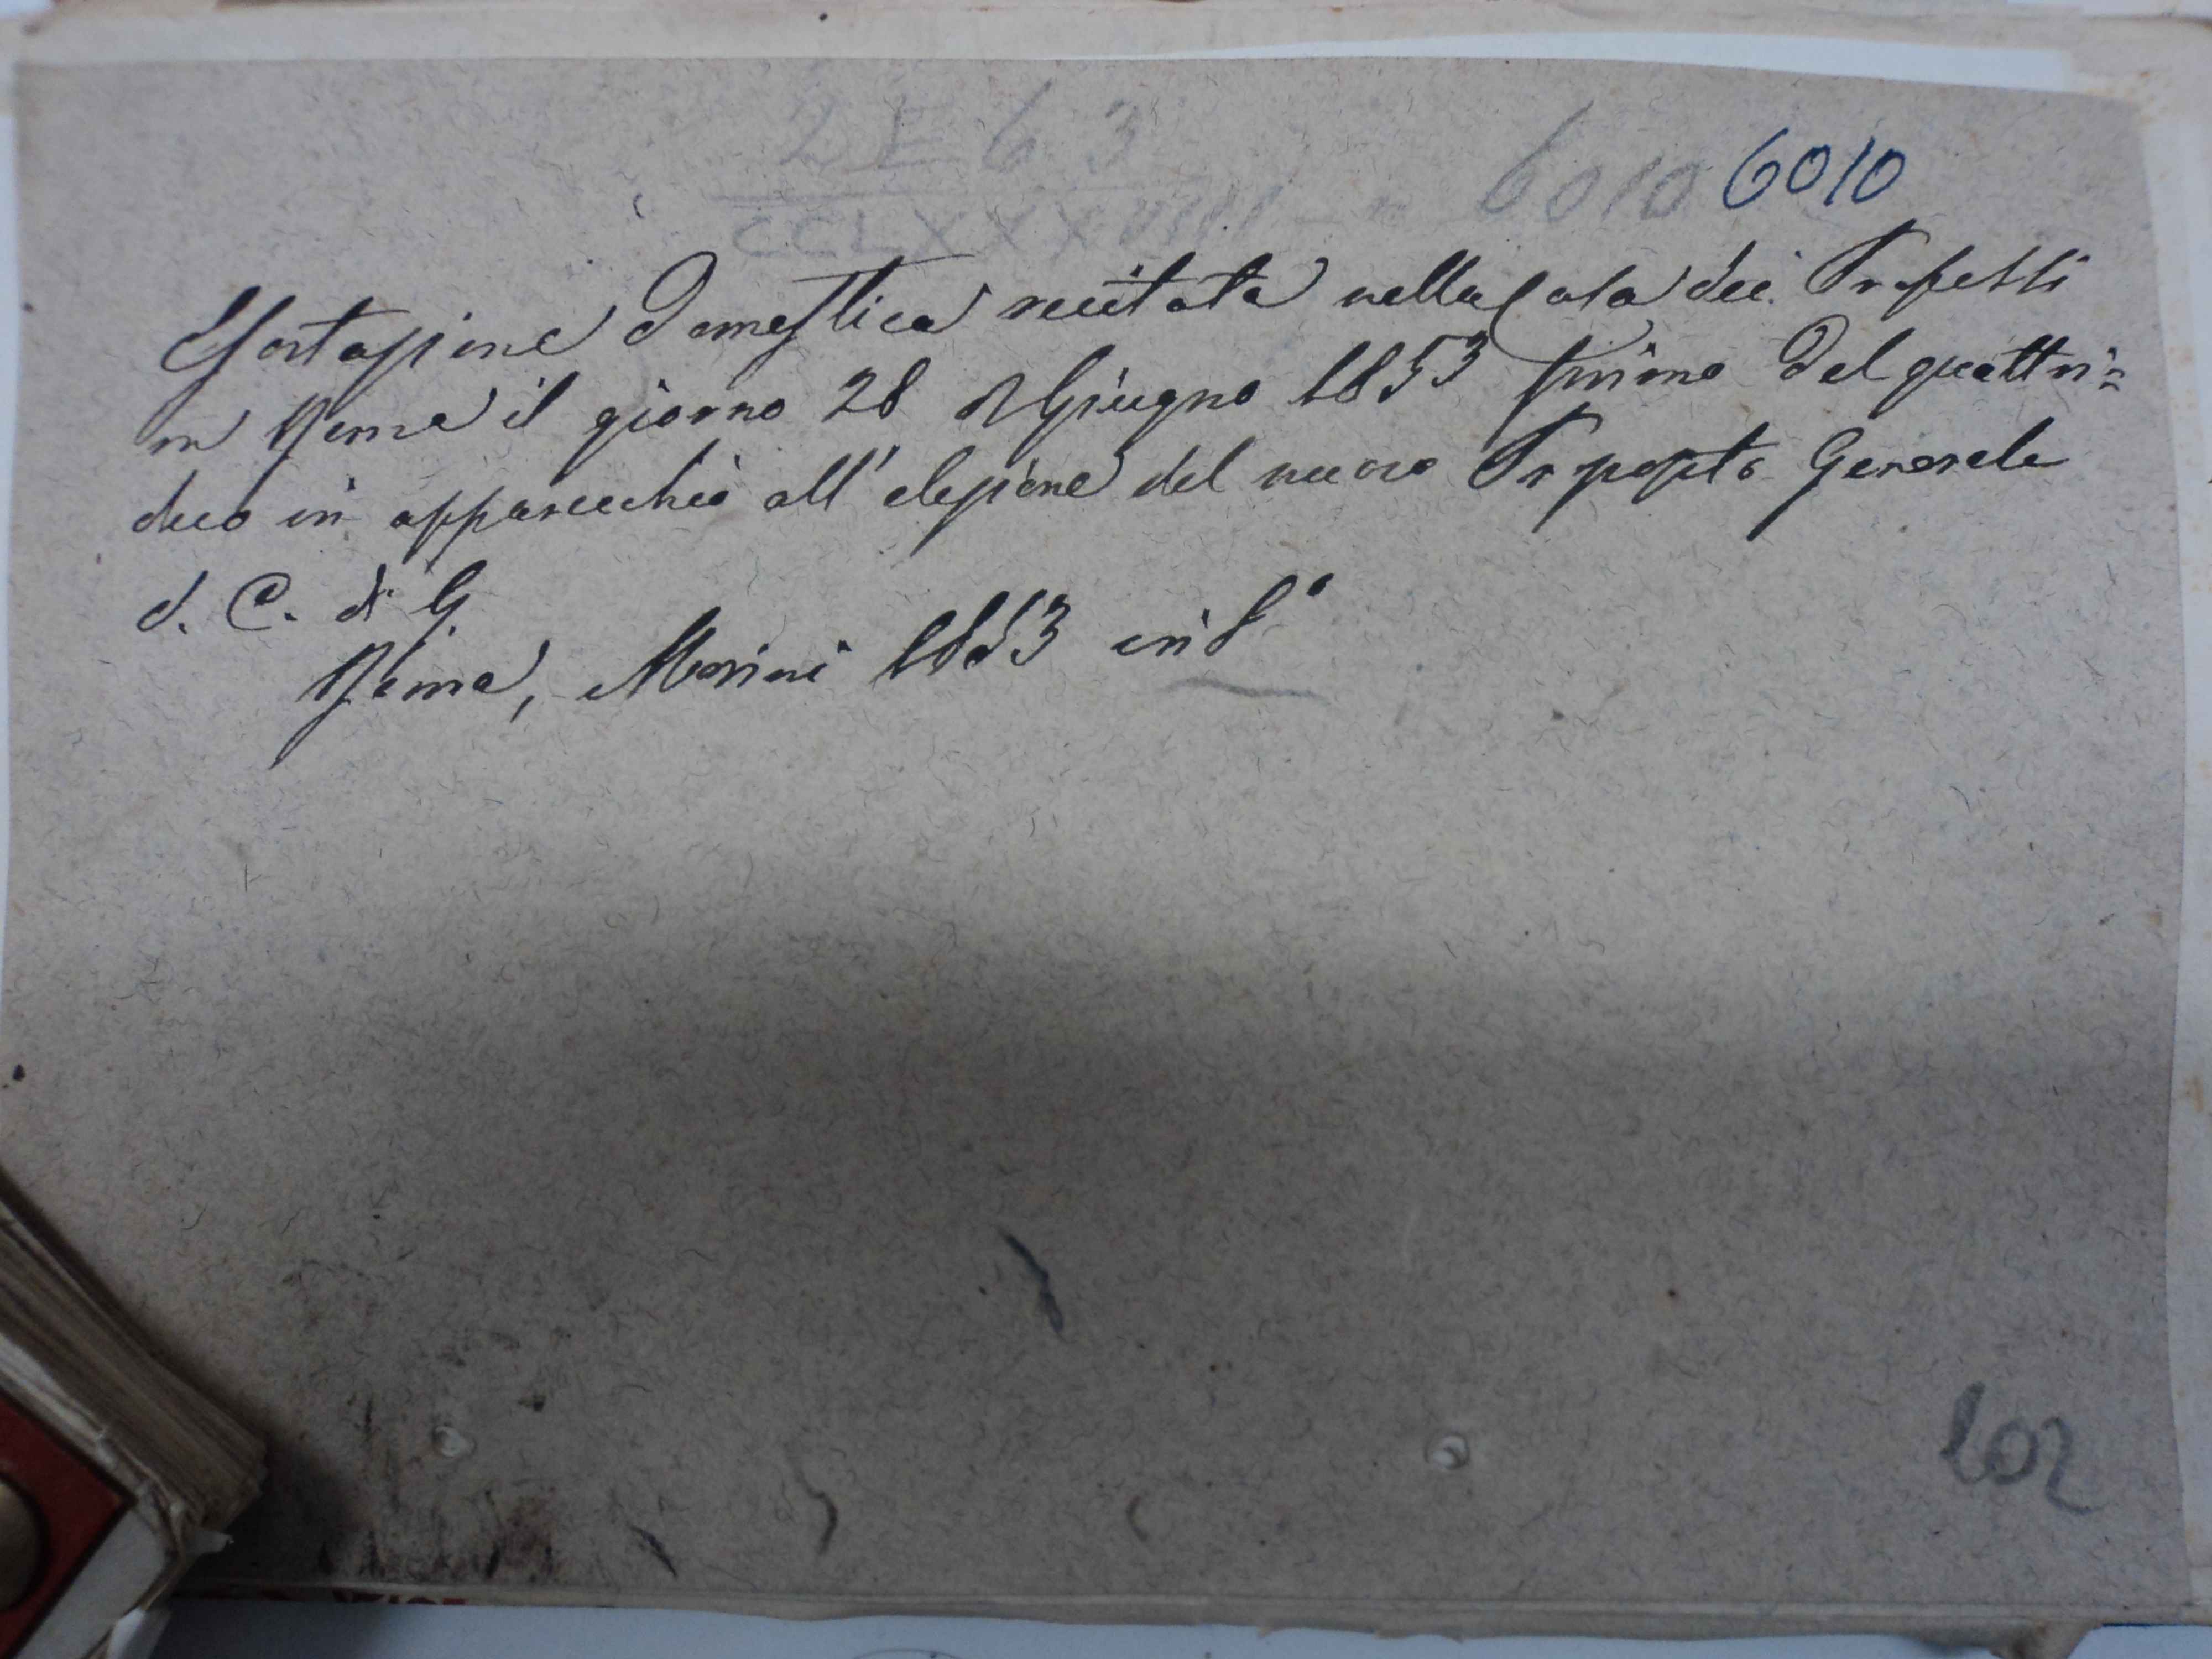 2 E 6 3
CCLXXXVIIII 6010 6010
Esortazione domestica recitata nella Casa dei Professi
in Roma il giorno 28 di Giugno 1853 primo del quattri=
duo in apparecchio all'elezione del nuovo Preposito Generale
d. C. di G.
Roma, Marini 1853 in 8°
102